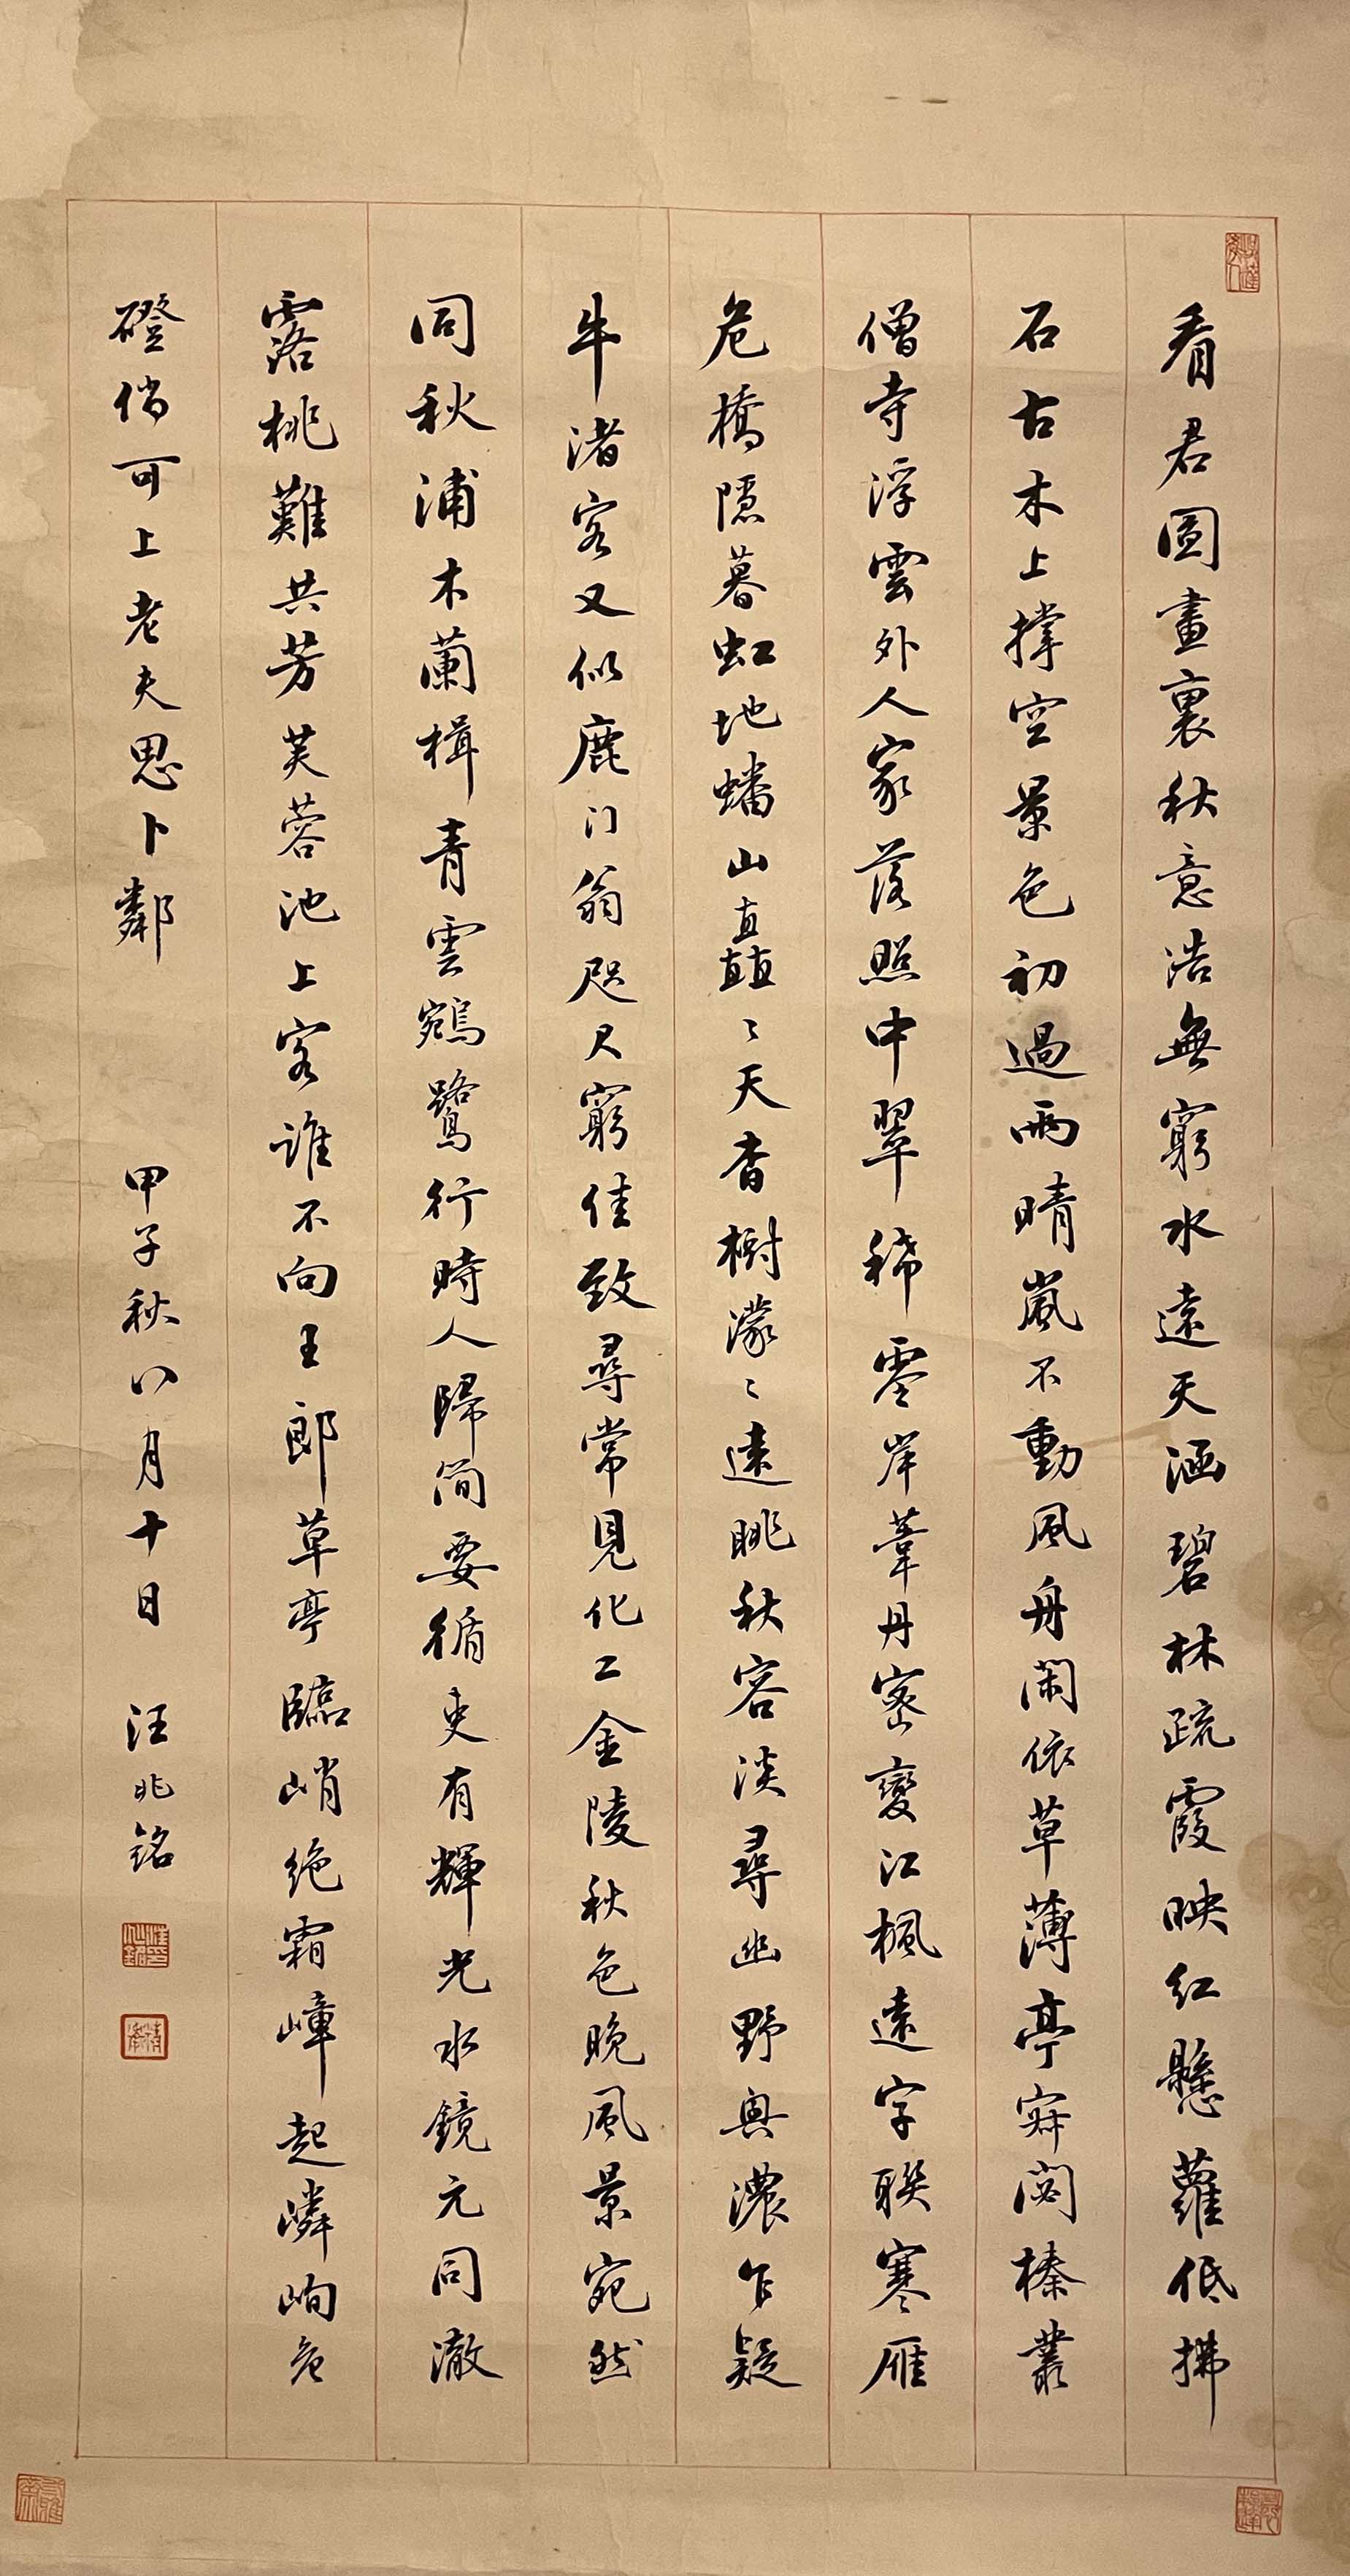 看君圖畫裏秋意浩無窮水遠天涵碧林疏霞映紅懸蘿低拂
石古木上撐空景色初過雨晴嵐不動風舟閑依草薄亭寂閟榛叢
僧寺浮雲外人家落照中翠稀零岸葦丹密變江楓遠字聯寒雁
危橋隱暮虹地蟠山矗〻天杳樹濛〻遠眺秋容淡尋幽野興濃乍疑
牛渚客又似鹿门翁咫尺窮佳致尋常見化工金陵秋色晚風景宛然
同秋浦木蘭楫青雲鵷鷺行時人歸简要循吏有輝光水鏡元同澈
露桃難共芳芙蓉池上客誰不向王郎草亭臨峭絶霜嶂起嶙峋危
磴倘可上老夫思卜鄰
甲子秋八月十日
汪兆銘